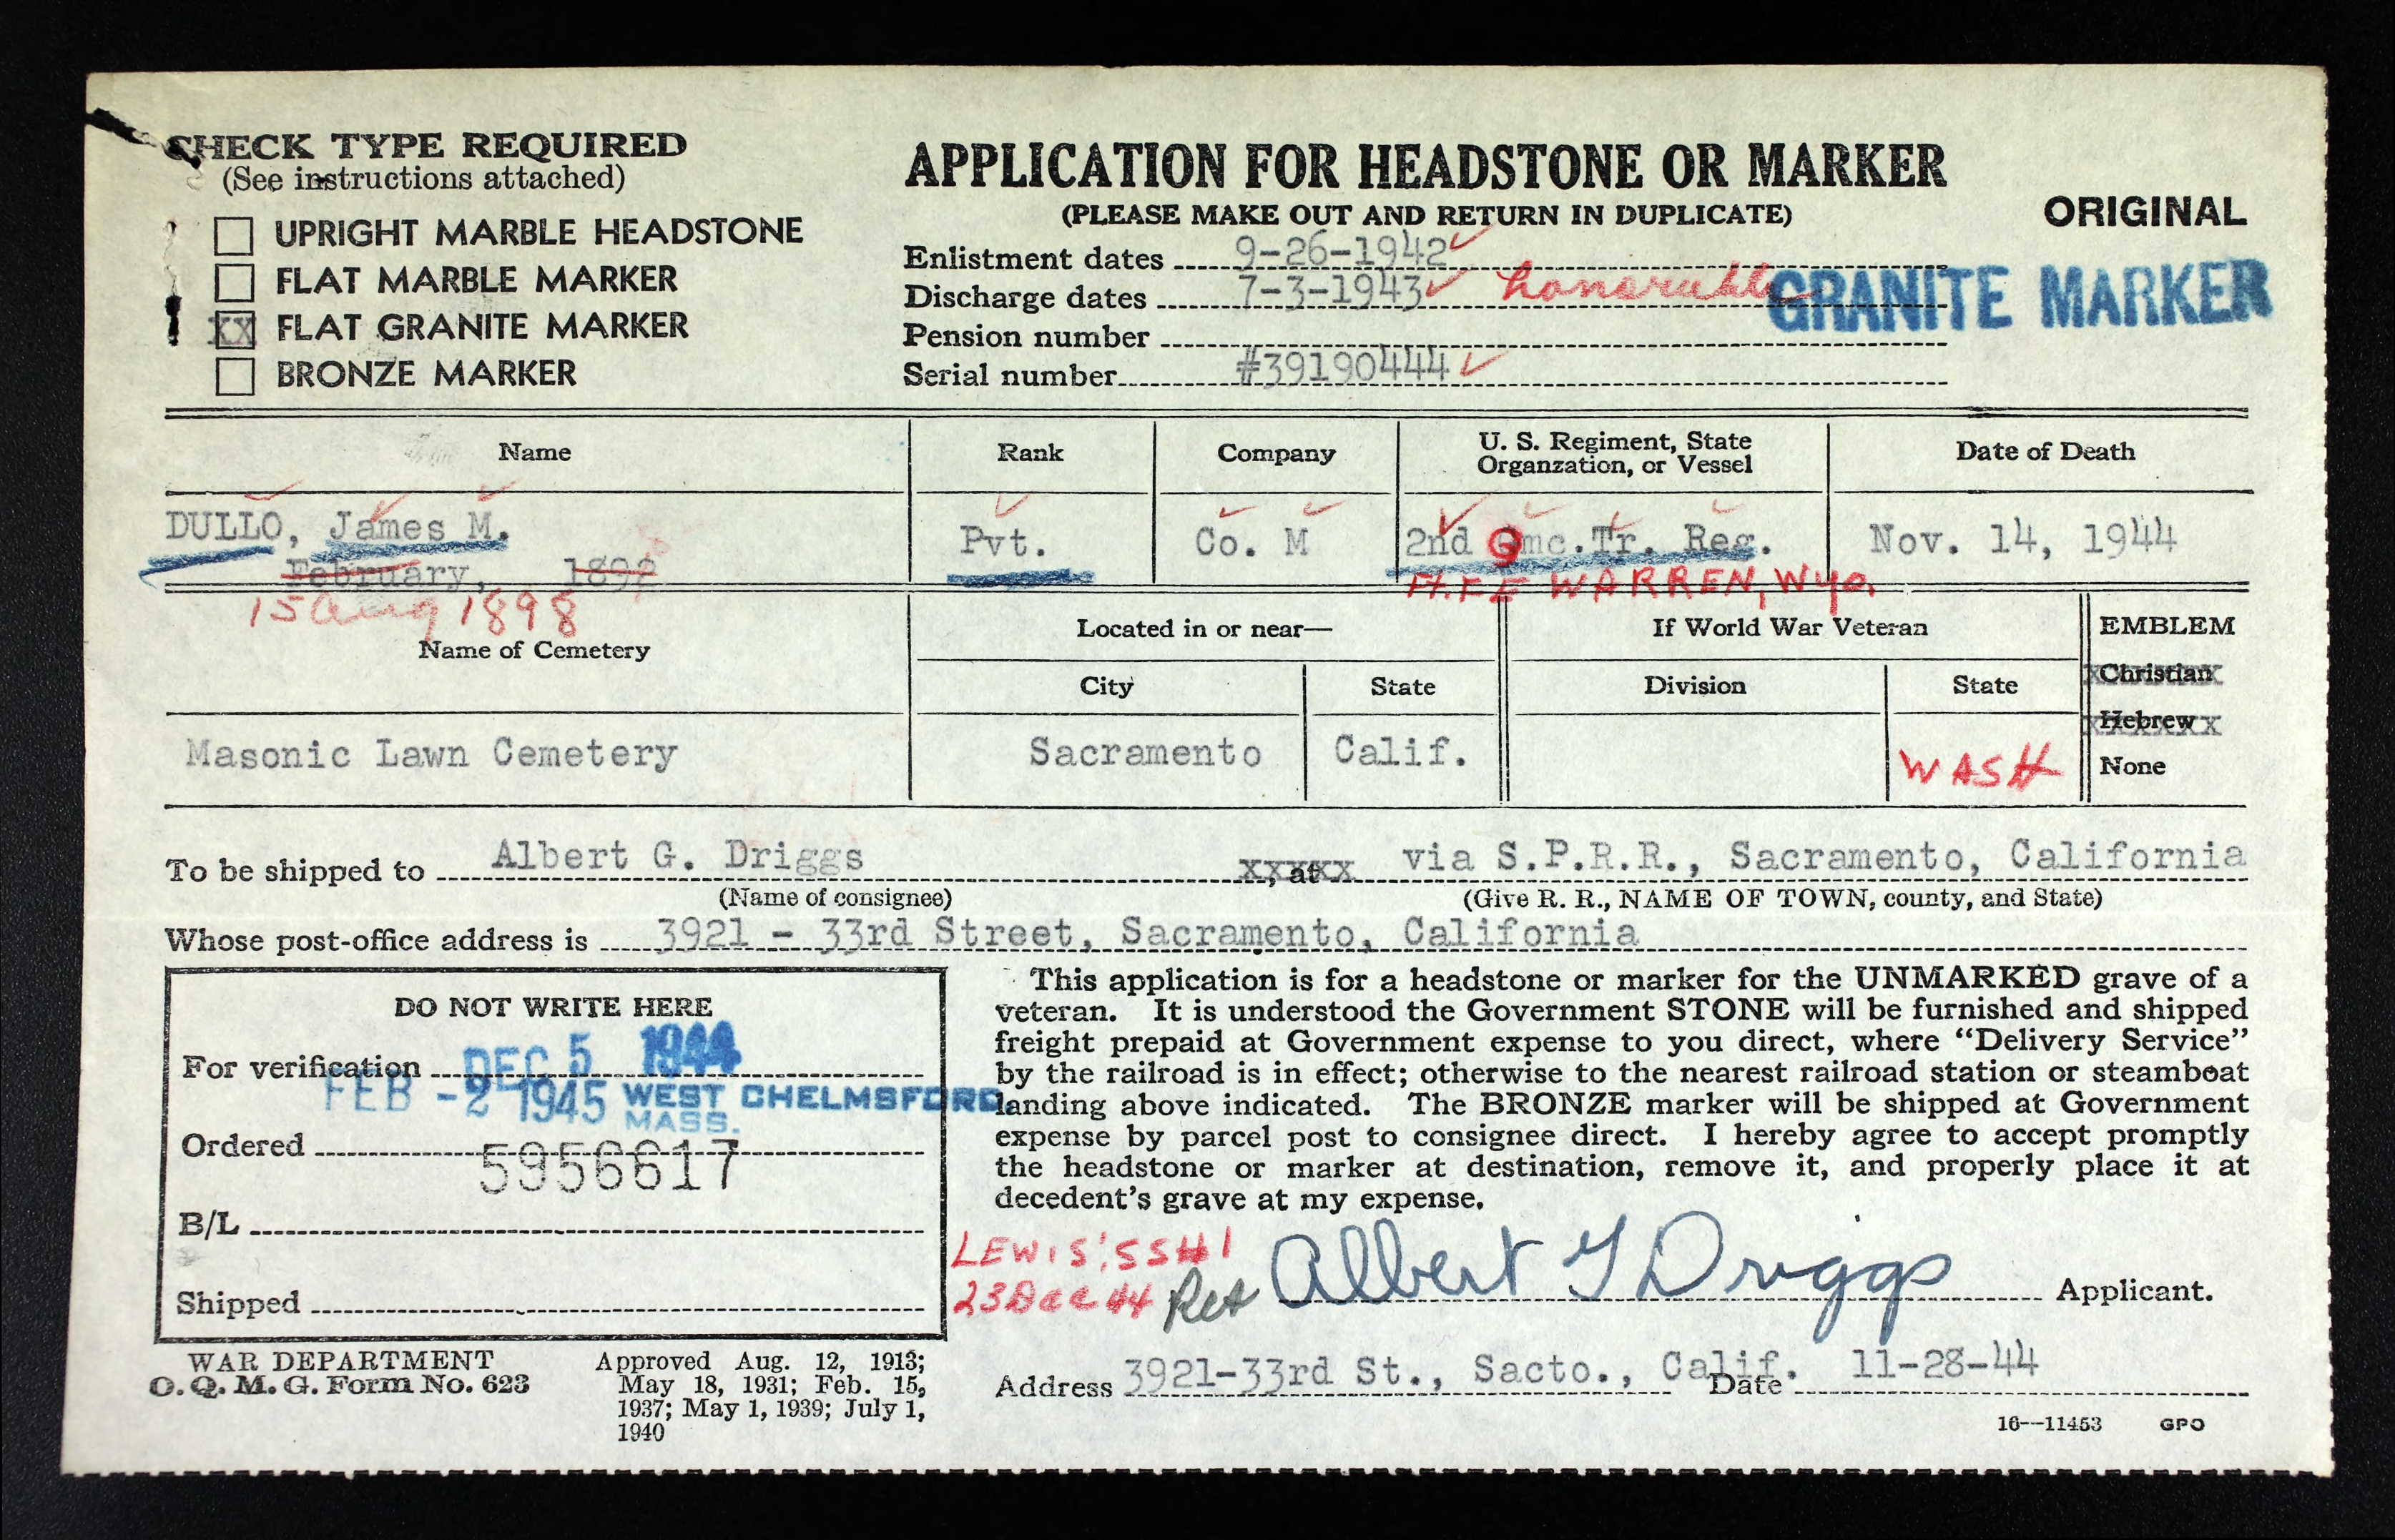 CHECK TYPE REQUIRED
(See instructions attached)
UPRIGHT MARBLE HEADSTONE
FLAT MARBLE MARKER
XX FLAT GRANITE MARKER
BRONZE MARKER
APPLICATION FOR HEADSTONE OR MARKER
(PLEASE MAKE OUT AND RETURN IN DUPLICATE)
ORIGINAL
Enlistment dates 9-26-1942
Discharge dates 7-3-1943 honorable
GRANITE MARKER
Pension number
Serial number #39190444
Name
Rank
Company
U. S. Regiment, State
Organzation, or Vessel
Date of Death
DULLO, James M.
Pvt.
Co. M
2nd Qmc. Tr. Reg.
Nov. 14, 1944
February, 1892
15 Aug 1898
WARREN, Wyo.
Name of Cemetery
Located in or near—
City
State
If World War Veteran
Division
State
EMBLEM
Christian
Hebrew
None
Masonic Lawn Cemetery
Sacramento
Calif.
WASH
To be shipped to Albert G. Driggs, at via S.P.R.R., Sacramento, California
(Name of consignee) (Give R. R., NAME OF TOWN, county, and State)
Whose post-office address is 3921 - 33rd Street, Sacramento, California
DO NOT WRITE HERE
For verification DEC 5 1944
FEB -2 1945 WEST CHELMSFORD,
MASS.
Ordered
5956617
B/L
Shipped
This application is for a headstone or marker for the UNMARKED grave of a
veteran. It is understood the Government STONE will be furnished and shipped
freight prepaid at Government expense to you direct, where “Delivery Service”
by the railroad is in effect; otherwise to the nearest railroad station or steamboat
landing above indicated. The BRONZE marker will be shipped at Government
expense by parcel post to consignee direct. I hereby agree to accept promptly
the headstone or marker at destination, remove it, and properly place it at
decedent’s grave at my expense.
LEWIS
23 Dec 44 Ret
Albert G Driggs Applicant.
Address 3921-33rd St., Sacto., Calif. Date 11-28-44
WAR DEPARTMENT
O. Q. M. G. Form No. 623
Approved Aug. 12, 1913;
May 18, 1931; Feb. 15,
1937; May 1, 1939; July 1,
1940
16—11453 GPO